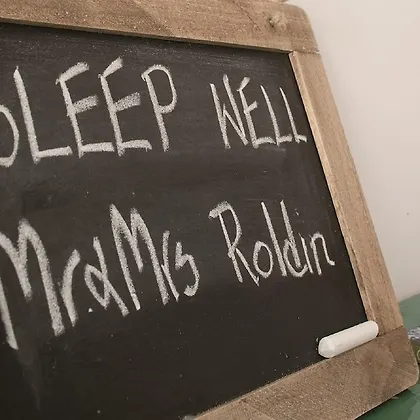 SLEEP WELL
Mr & Mrs Roldin